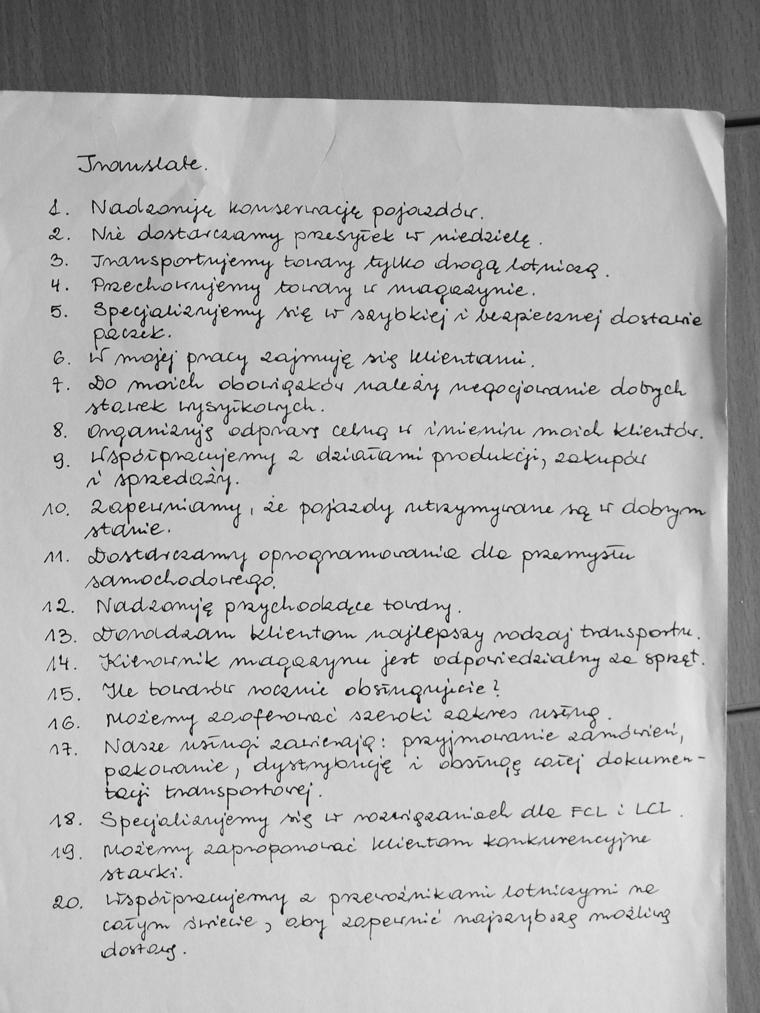 Translate.
1. Nadzoruję konserwację pojazdów.
2. Nie dostarczamy przesyłek w niedzielę.
3. Transportujemy towary tylko drogą lotniczą.
4. Przechowujemy towary w magazynie.
5. Specjalizujemy się w szybkiej i bezpiecznej dostawie
paczek.
6. W mojej pracy zajmuję się klientami.
7. Do moich obowiązków należy negocjowanie dobrych
stawek wysyłkowych.
8. Organizuję odprawę celną w imieniu moich klientów.
9. Współpracujemy z działami produkcji, zakupów
i sprzedaży.
10. Zapewniamy, że pojazdy utrzymywane są w dobrym
stanie.
11. Dostarczamy oprogramowanie dla przemysłu
samochodowego.
12. Nadzoruję przychodzące towary.
13. Doradzam klientom najlepszy rodzaj transportu.
14. Kierownik magazynu jest odpowiedzialny za sprzęt.
15. Ile towarów rocznie obsługujecie?
16. Możemy zaoferować szeroki zakres usług.
17. Nasze usługi zawierają: przyjmowanie zamówień,
pakowanie, dystrybucję i obsługę całej dokumen-
tacji transportowej.
18. Specjalizujemy się w rozwiązaniach dla FCL i LCL.
19. Możemy zaproponować klientom konkurencyjne
stawki.
20. Współpracujemy z przewoźnikami lotniczymi na
całym świecie, aby zapewnić najszybszą możliwą
dostawę.